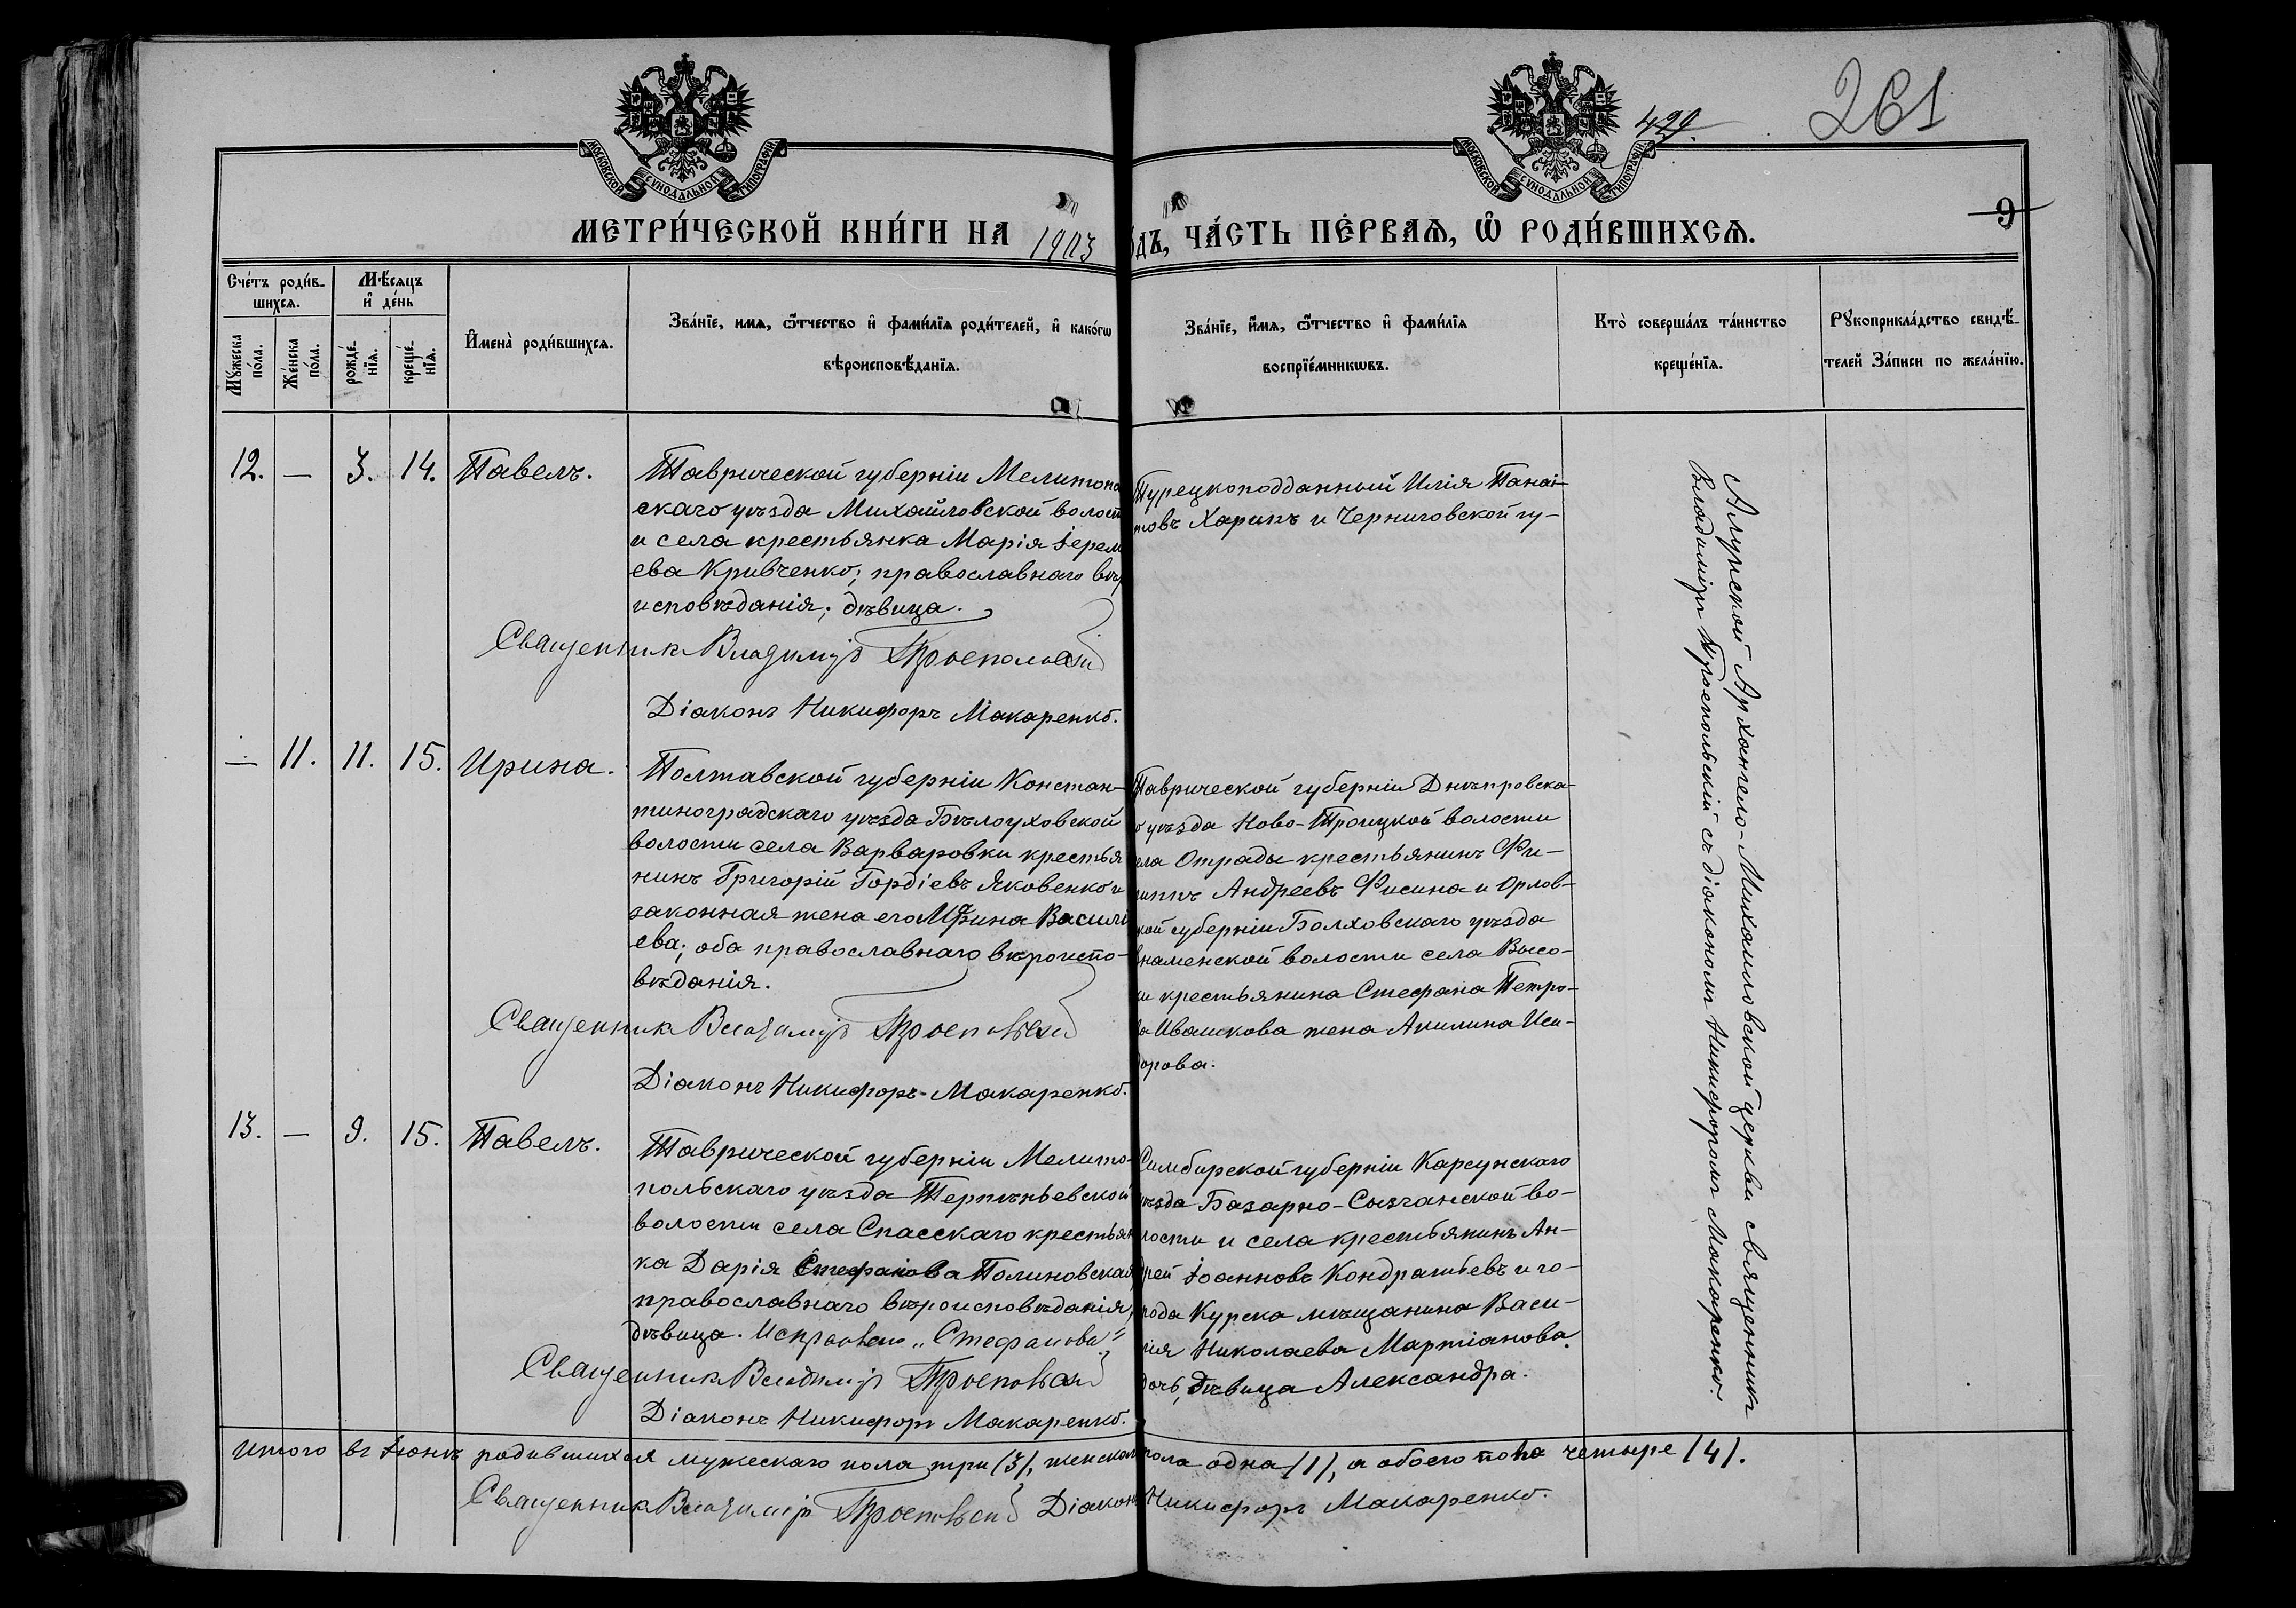 МОСКОВСКОЙ СѴНОДАЛЬНОЙ ТИПОГРАФІИ
МОСКОВСКОЙ СѴНОДАЛЬНОЙ ТИПОГРАФІИ
261
9
МЕТРИ́ЧЕСКОЙ КНИ́ГИ НА 1903
дъ, ЧА́СТЬ ПЕ́РВАѦ, Ѡ҆ РОДИ́ВШИХСѦ.
Сче́тъ роди́в-
шихсѧ.
Мꙋжеска по́ла.
Же́нска по́ла.
Мѣ́сѧцъ
и҆ де́нь
рожде́-
нїѧ.
креще́-
нїѧ.
И҆мена̀ роди́вшихсѧ.
Зва́нїе, имѧ, ѻ҆́тчество и҆ фами́лїѧ роди́телей, и҆ како́гѡ
вѣроисповѣ́данїѧ.
Зва́нїе, и҆́мѧ, ѻ҆́тчество и҆ фами́лїѧ
воспрїе́мникѡвъ.
Кто̀ соверша́лъ та́инство
креще́нїѧ.
Рꙋкоприкла́дство свидѣ́-
телей За́писи по жела́нїю.
12. — 3. 14. Павелъ.
Таврической губерніи Мелитопо
скаго уѣзда Михайловской волост
и села крестьянка Марія Іерем
ева Кривченко; православнаго вѣр
исповѣданія; дѣвица.
Священник Владимір Троепольскій
Діаконъ Никифоръ Макаренко.
Турецкоподданный Илія Панаі-
товъ Харикъ и Черниговской гу-
— 11. 11. 15. Ирина.
Полтавской губерніи Констан-
тиноградскаго уѣзда Бѣлоуховской
волости села Варваровки крестья
нинъ Григорій Гордіевъ Яковенко и
законная жена его Ирина Васил
ева; оба православнаго вѣроиспо-
вѣданія.
Священник Владимір Троепольскій
Діаконъ Никифоръ Макаренко.
Таврической губерніи Днѣпровска-
о уѣзда Ново-Троицкой волости
ела Отрады крестьянинъ Фи-
липпъ Андреевъ Фисина и Орлов-
кой губерніи Болховскаго уѣзда
Знаменской волости села Высо-
и крестьянина Стефана Петро-
ва Ивашкова жена Акилина Иси-
дорова.
13. — 9. 15. Павелъ.
Таврической губерніи Мелито-
польскаго уѣзда Терпѣньевской
волости села Спасскаго крестьян
ка Дарія Стефанова Полиновская
православнаго вѣроисповѣданія,
дѣвица. Исправлено „Стефанова"
Священник Владимір Троепольскій
Діаконъ Никифоръ Макаренко.
Симбирской губерніи Карсунскаго
уѣзда Базарно-Сызганской во-
лости и села крестьянинъ Ан-
дрей Іоанновъ Кондратьевъ и го-
рода Курска мѣщанина Васи-
лія Николаева Мартіанова
дочь, дѣвица Александра.
Алупкской Архангело-Михаиловской церкви священникъ
Владиміръ Троепольскій съ діакономъ Никифоромъ Макаренко.
Итого въ Іюнѣ родившихся мужескаго пола три (3), женскаго пола одна (1), а обоего пола четыре (4).
Священник Владимір Троепольскій Діаконъ Никифоръ Макаренко.